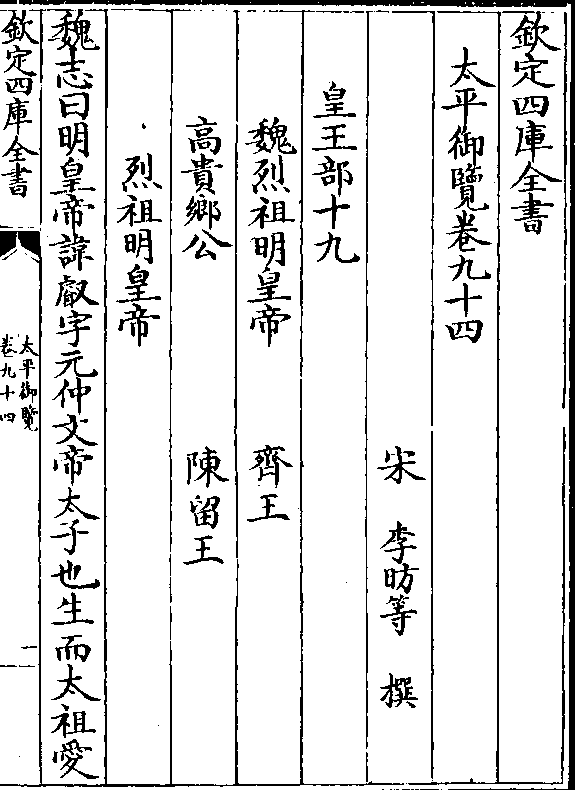 欽定四庫全書
太平御覽卷九十四
宋 李昉等 撰
皇王部十九
魏烈祖明皇帝 齊王
高貴鄉公 陳留王
烈祖明皇帝
魏志曰明皇帝諱叡字元仲文帝太子也生而太祖愛
欽定四庫全書
太平御覽
卷九十四
一